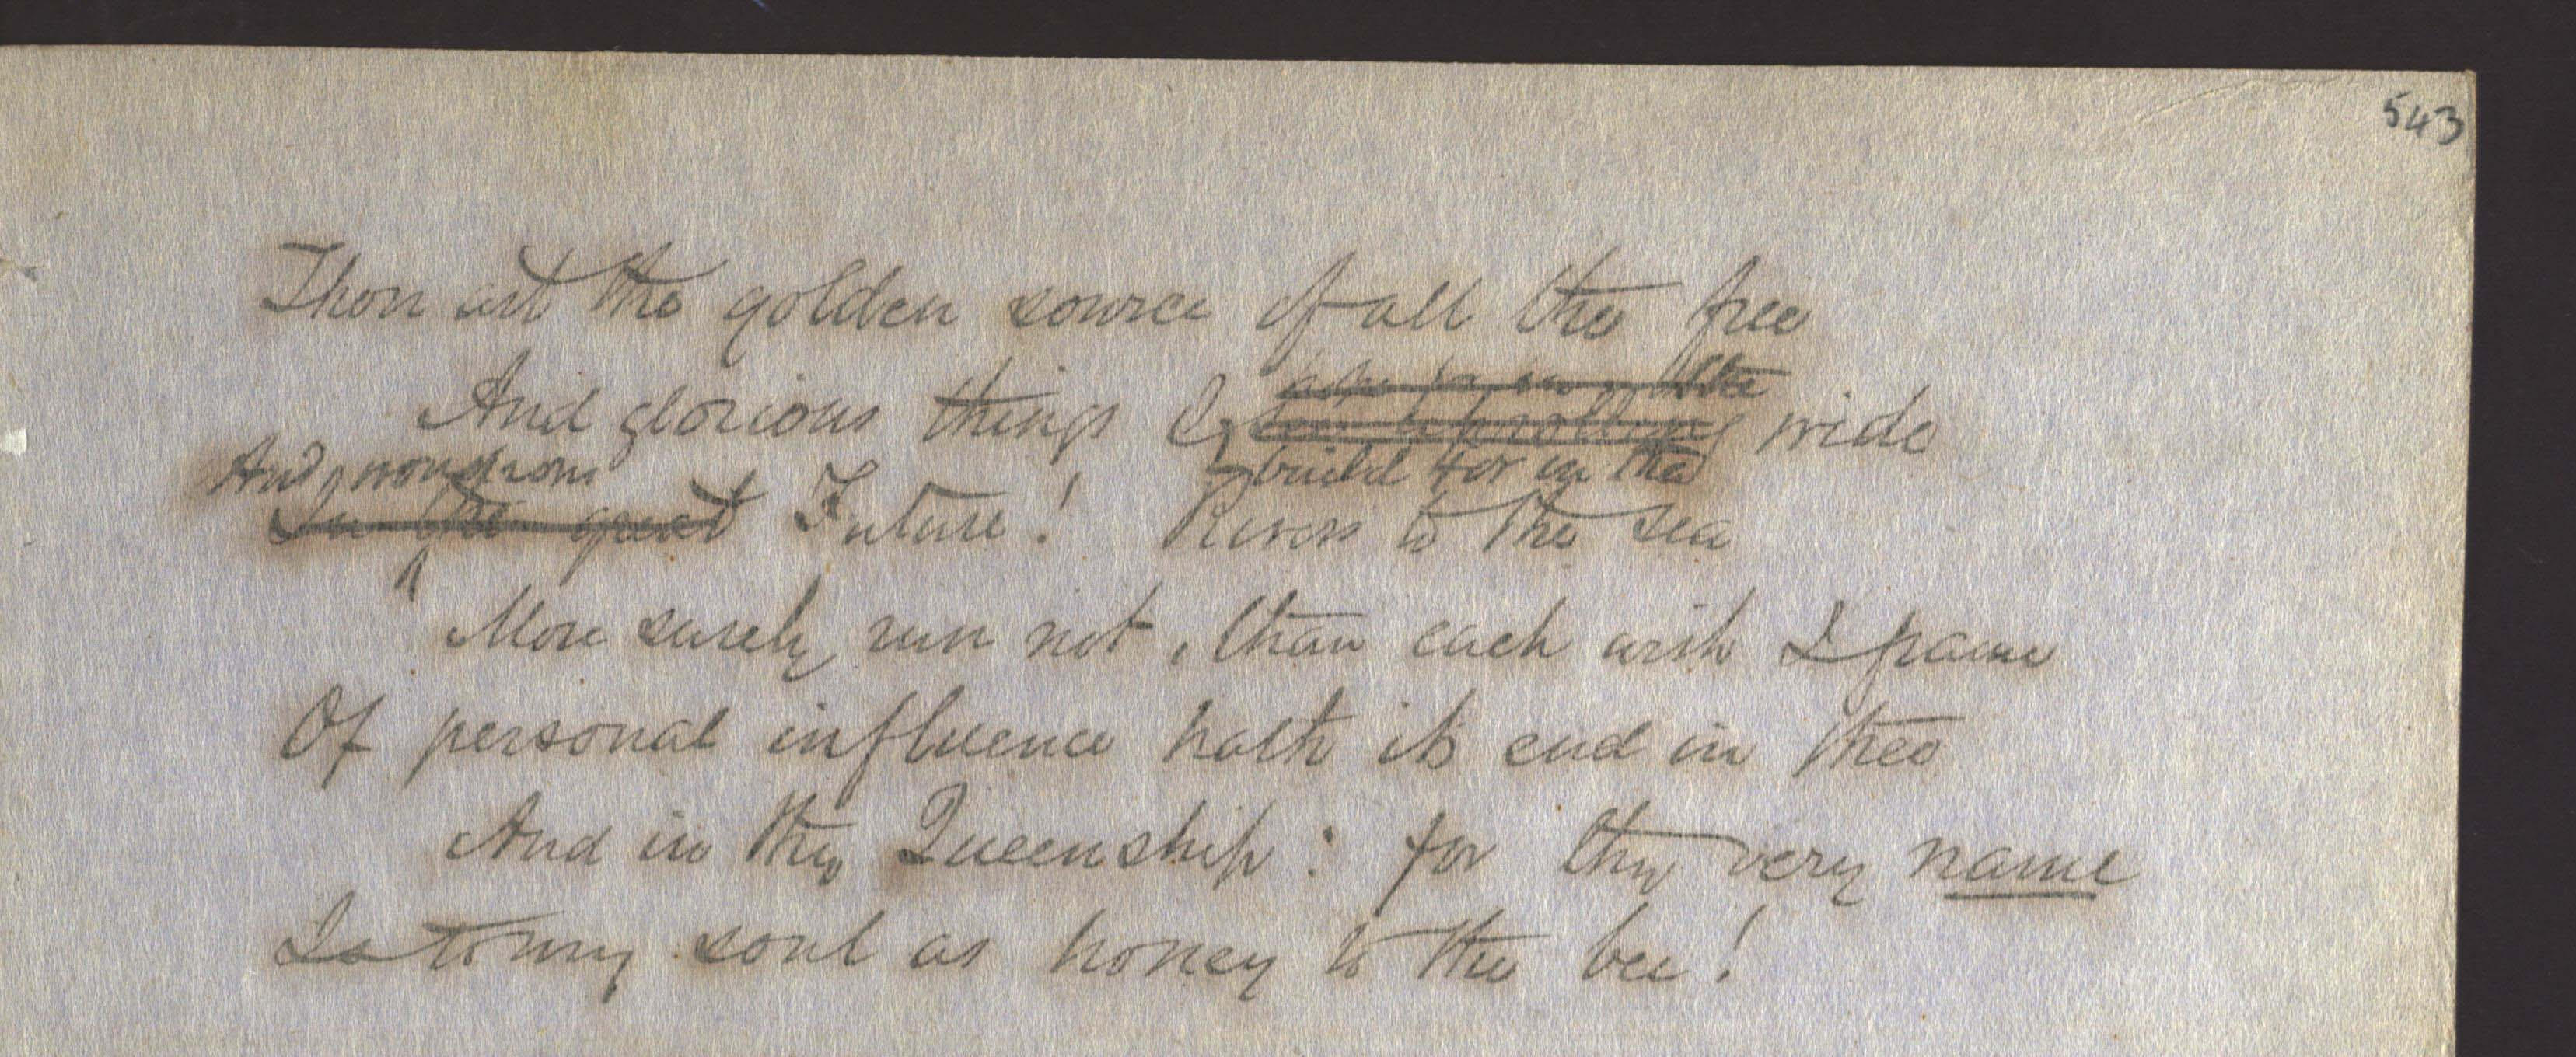 543
Thou art the golden source of all the free
the
And glorious things I wide
And wondrous build for in the
In the great Future! Rivers to the sea
More surely run not, than each wish I frame
Of personal influence hath its end in thee
And in thy Queenship: for thy very name
Is to my soul as honey to the bee!